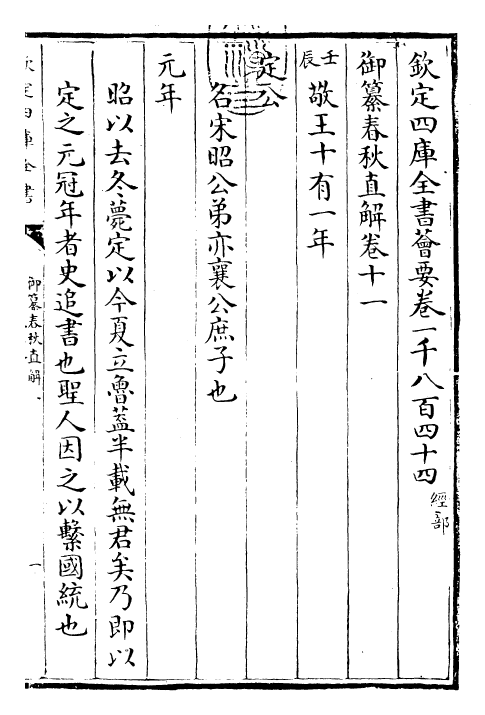 欽定四庫全書薈要卷一千八百四十四 經部
御纂春秋直解卷十一
壬辰 敬王十有一年
定公
名宋昭公弟亦襄公庶子也
元年
昭以去冬薨定以今夏立魯蓋半載無君矣乃即以
定之元冠年者史追書也聖人因之以繫國統也
欽定四庫全書
御纂春秋直解
一